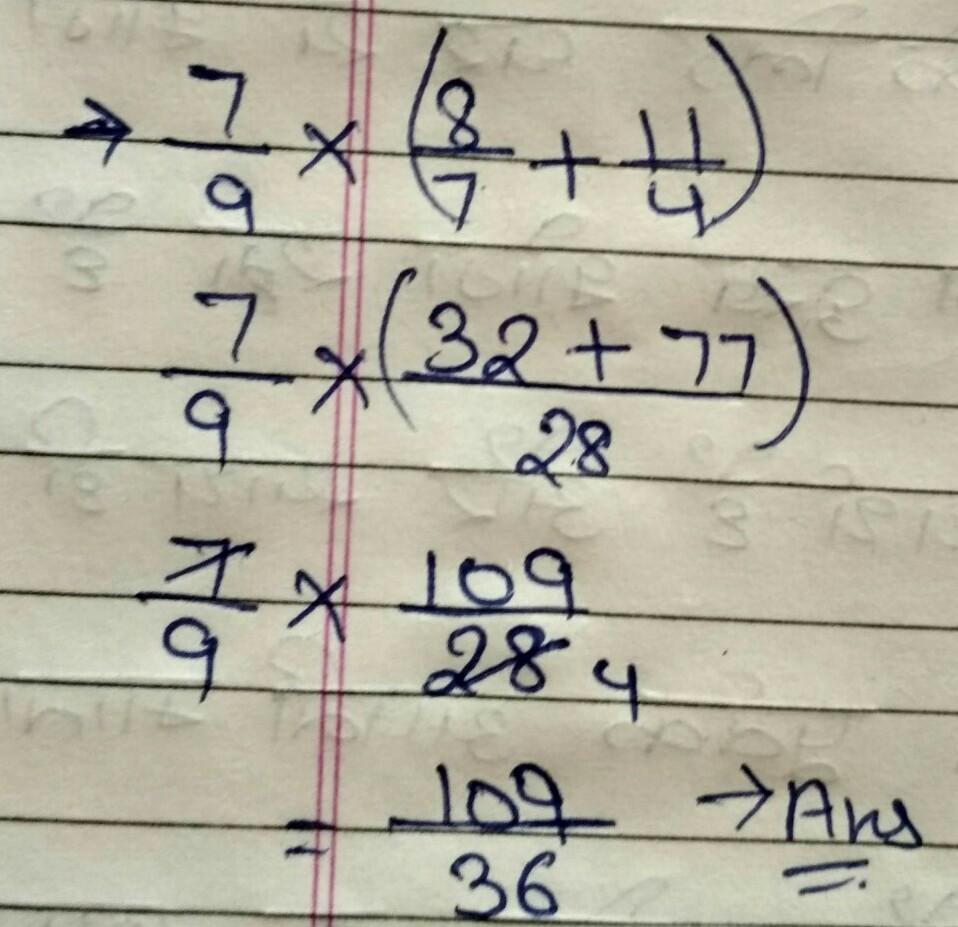 → 7/9 × (8/7 + 11/4)
7/9 × (32 + 77)/28
7/9 × 109/28 4
= 109/36 → Ans